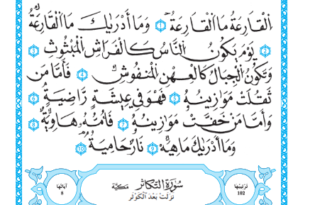 اَلْقَارِعَةُ مَا الْقَارِعَةُ وَمَا أَدْرٰيكَ مَا الْقَارِعَةُ
يَوْمَ يَكُونُ النَّاسُ كَالْفَرَاشِ الْمَبْثُوثِ
وَتَكُونُ الْجِبَالُ كَالْعِهْنِ الْمَنْفُوشِ فَأَمَّا مَنْ
ثَقُلَتْ مَوَازِينُهُ فَهُوَ فِي عِيشَةٍ رَاضِيَةٍ
وَأَمَّا مَنْ خَفَّتْ مَوَازِينُهُ فَأُمُّهُ هَاوِيَةٌ
وَمَا أَدْرٰيكَ مَاهِيَهْ نَارٌ حَامِيَةٌ
ترتيبها 102 سُورَةُ التَّكَاثُرِ مَكِّيَّة آياتها 8
نزلت بعد الكوثر